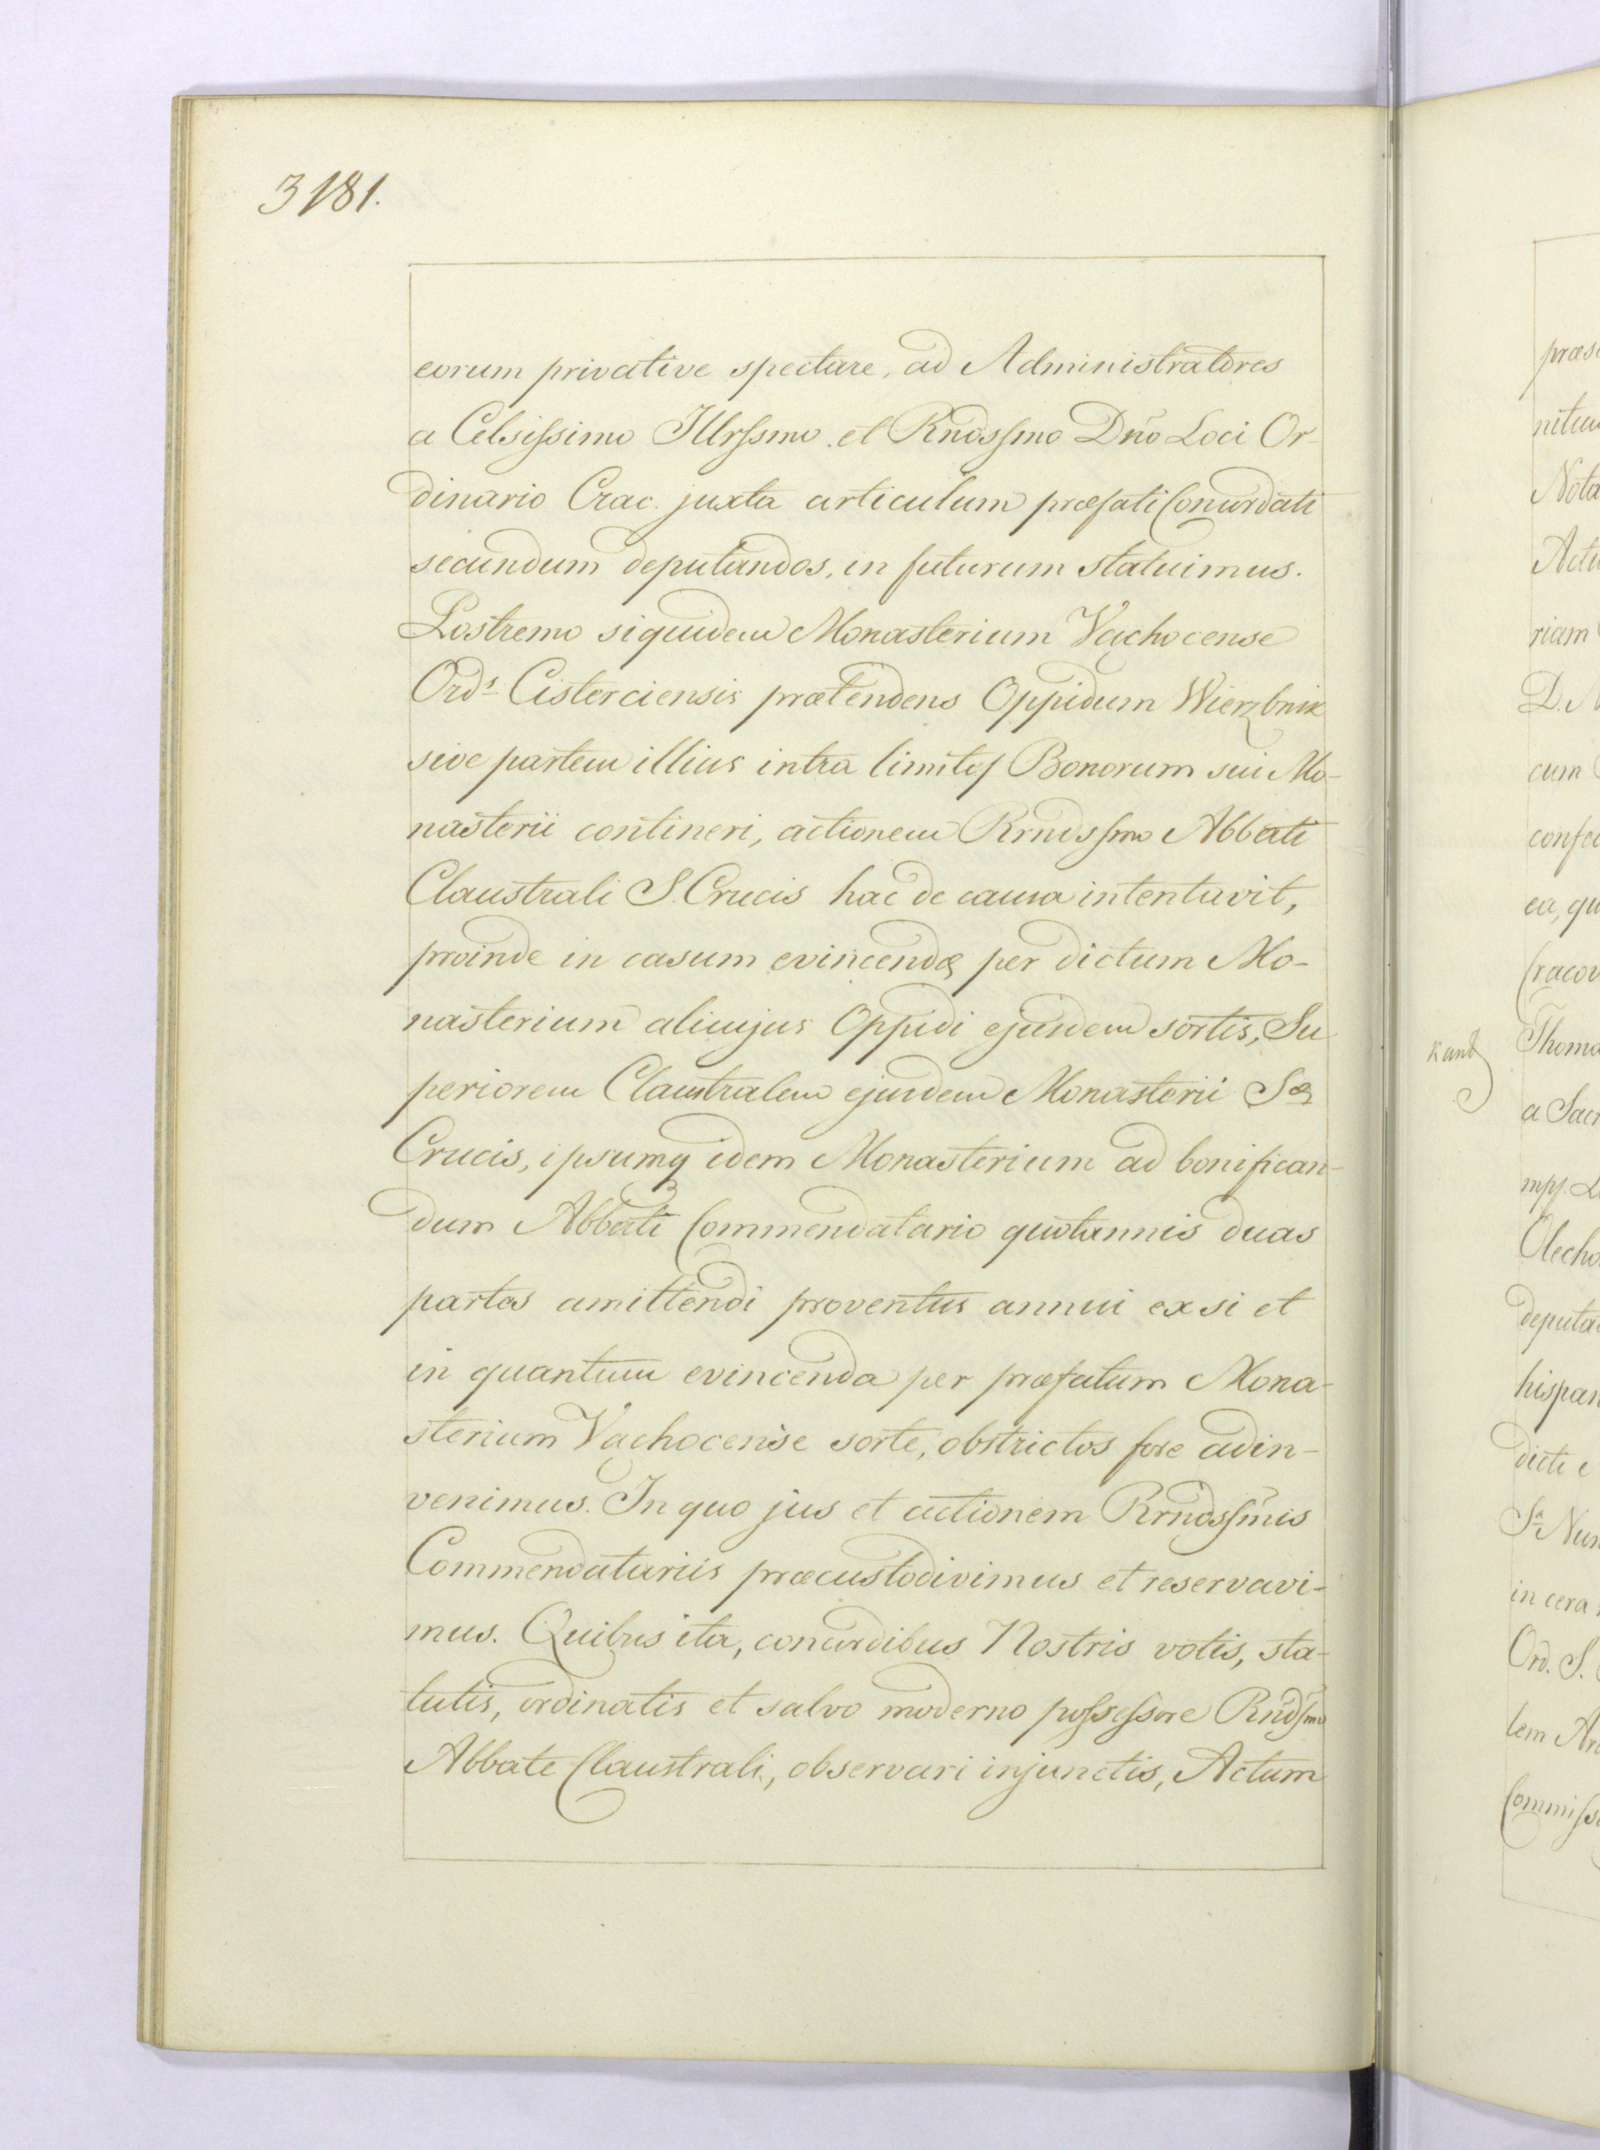 3181.
eorum privative spectare, ad Administratores
a Celsissimo Illrssmo et Rndssmo Dno Loci Or-
dinario Crac. juxta articulum præfati Concordati
secundum deputandos, in futurum statuimus.
Postremo siquidem Monasterium Vąchocense
Ords Cisterciensis prætendens Oppidum Wierzbnik
sive partem illius intra limites Bonorum sui Mo-
nasterii contineri, actionem Rrndssmo Abbati
Claustrali S. Crucis hac de causa intentavit,
proinde in casum evincendæ per dictum Mo-
nasterium alicujus Oppidi ejusdem sortis, Su
periorem Claustralem ejusdem Monasterii Sæ
Crucis, ipsumq idem Monasterium ad bonifican-
dum Abbati Commendatario quotannis duas
partes amittendi proventus annui ex si et
in quantum evincenda per præfatum Mona-
sterium Vąchocense sorte, obstrictos fore adin-
venimus. In quo jus et actionem Rrndssmis
Commendatariis præcustodivimus et reservavi-
mus. Quibus ita, concordibus Nostris votis, sta-
tutis, ordinatis et salvo moderno possessore Rndsmo
Abbate Claustrali, observari injunctis, Actum
præs
nitum
Nota
Actu
riam
D. N
cum
confec
ea, qu
Cracov
Kant
Thoma
a Sacr
mpp.
Olecho
deputa
hispan
dicti
Sa Nun
in cera
Ord. S.
tem Ar
Commiss